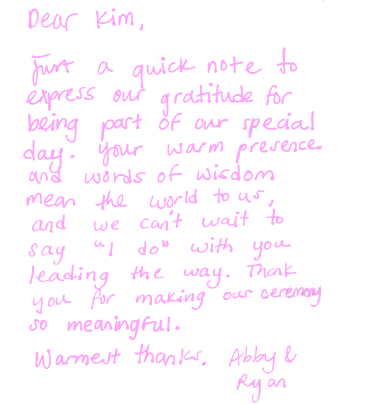 Dear Kim,
Just a quick note to
express our gratitude for
being part of our special
day. Your warm presence
and words of wisdom
mean the world to us,
and we can't wait to
say "I do" with you
leading the way. Thank
you for making our ceremony
so meaningful.
Warmest thanks. Abby &
Ryan